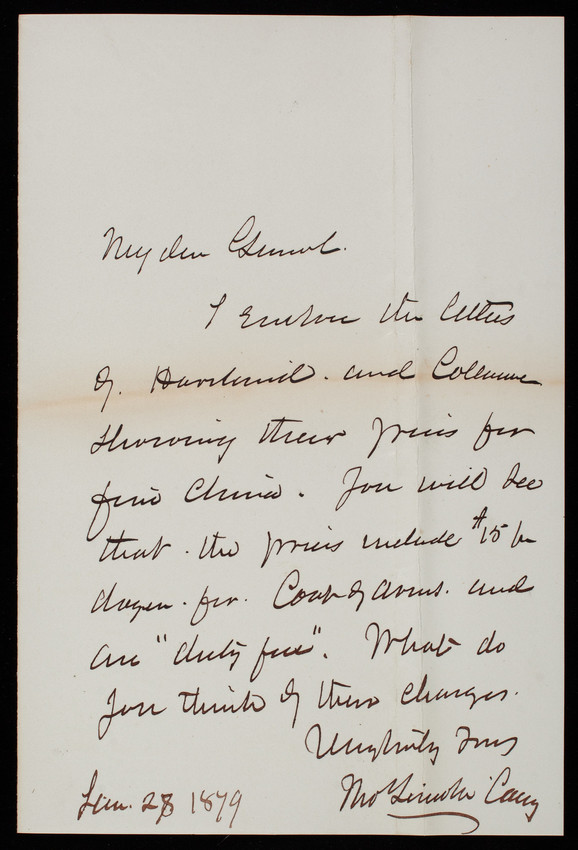 My dear General.
I enclose the letters
of. Haviland. and Collamore
showing their prices for
fine China. You will see
that. the prices include $15 per
dozen. for. Coat of arms. and
are "duty free". What do
you think of their charges.
Very truly Yours
Thos Lincoln Casey
Jan. 28 1879